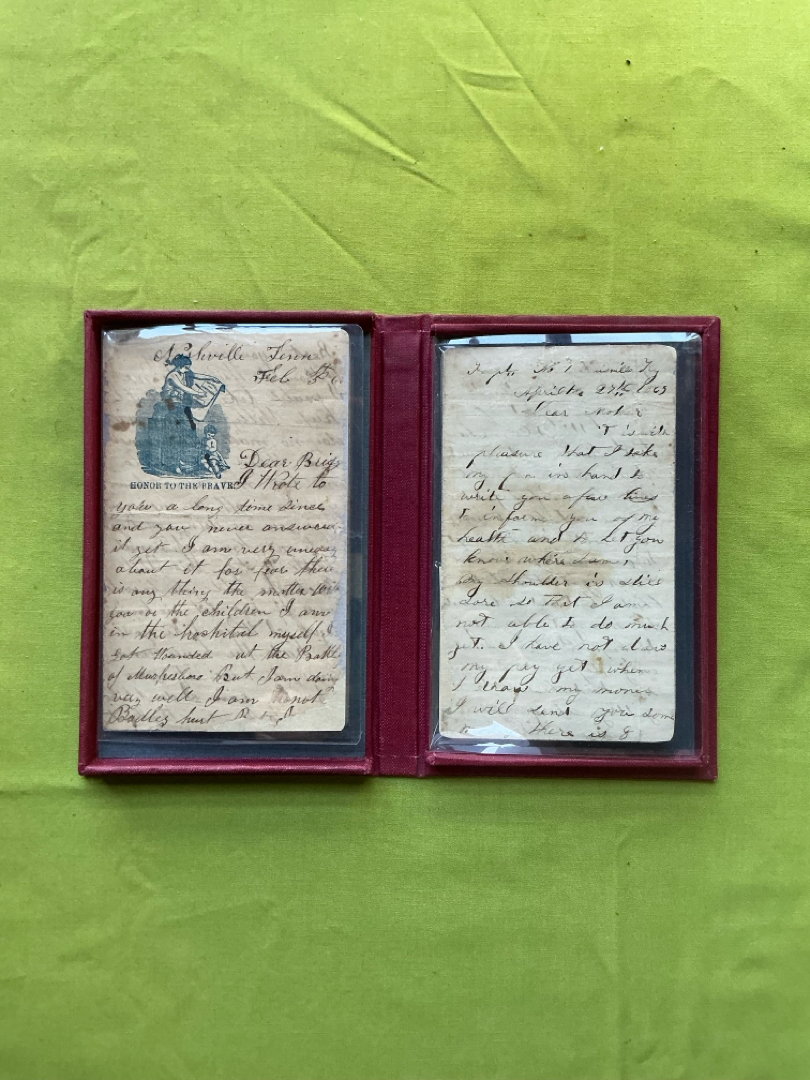 Nashville Tenn
Feb 5th
Dear
HONOR TO THE BRAVE
I Wrote to
you a long time since
and you never answered
it yet I am very uneasy
about it for fear there
is any thing the matter
you or the children I am
in the hospital myself I
got Wounded at the Battle
of Murfesboro But I am doing
very well I am not
Badley hurt
April 27th
Dear
it is with
pleasure that I take
my pen in hand to
write you a few lines
to inform you of my
health and to let you
know where I am,
my Shoulder is
sore so that I am
not able to do much
yet. I have not draw
my pay yet when
I draw my money
I will send you some
there is